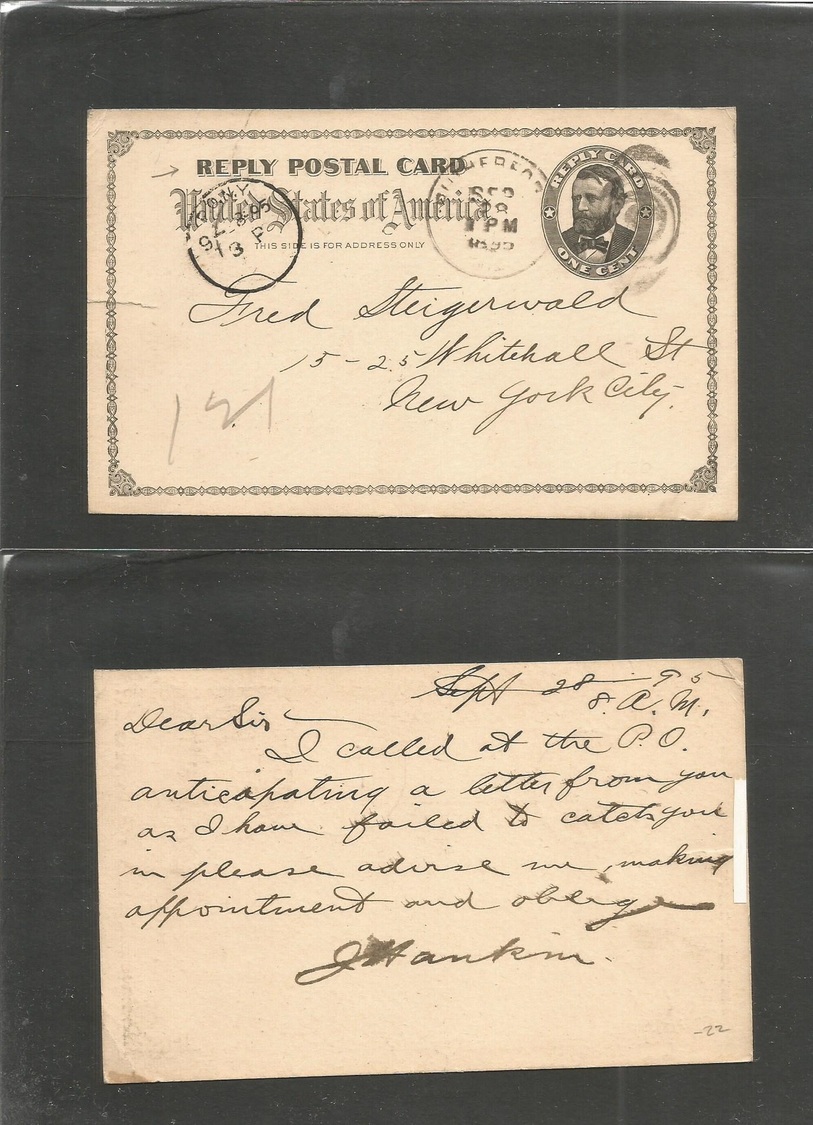 REPLY POSTAL CARD
United States of America
THIS SIDE IS FOR ADDRESS ONLY
REPLY CARD
ONE CENT
N.Y.
13 P
PM
Fred Steigerwald
15-25 Whitehall St
New York City.
Sept 28 - 95
8. A. M.
Dear Sir
I called at the P.O.
anticipating a letter from you
as I have failed to catch you
in please advise me, making
appointment and oblige
J Hankin.
-22